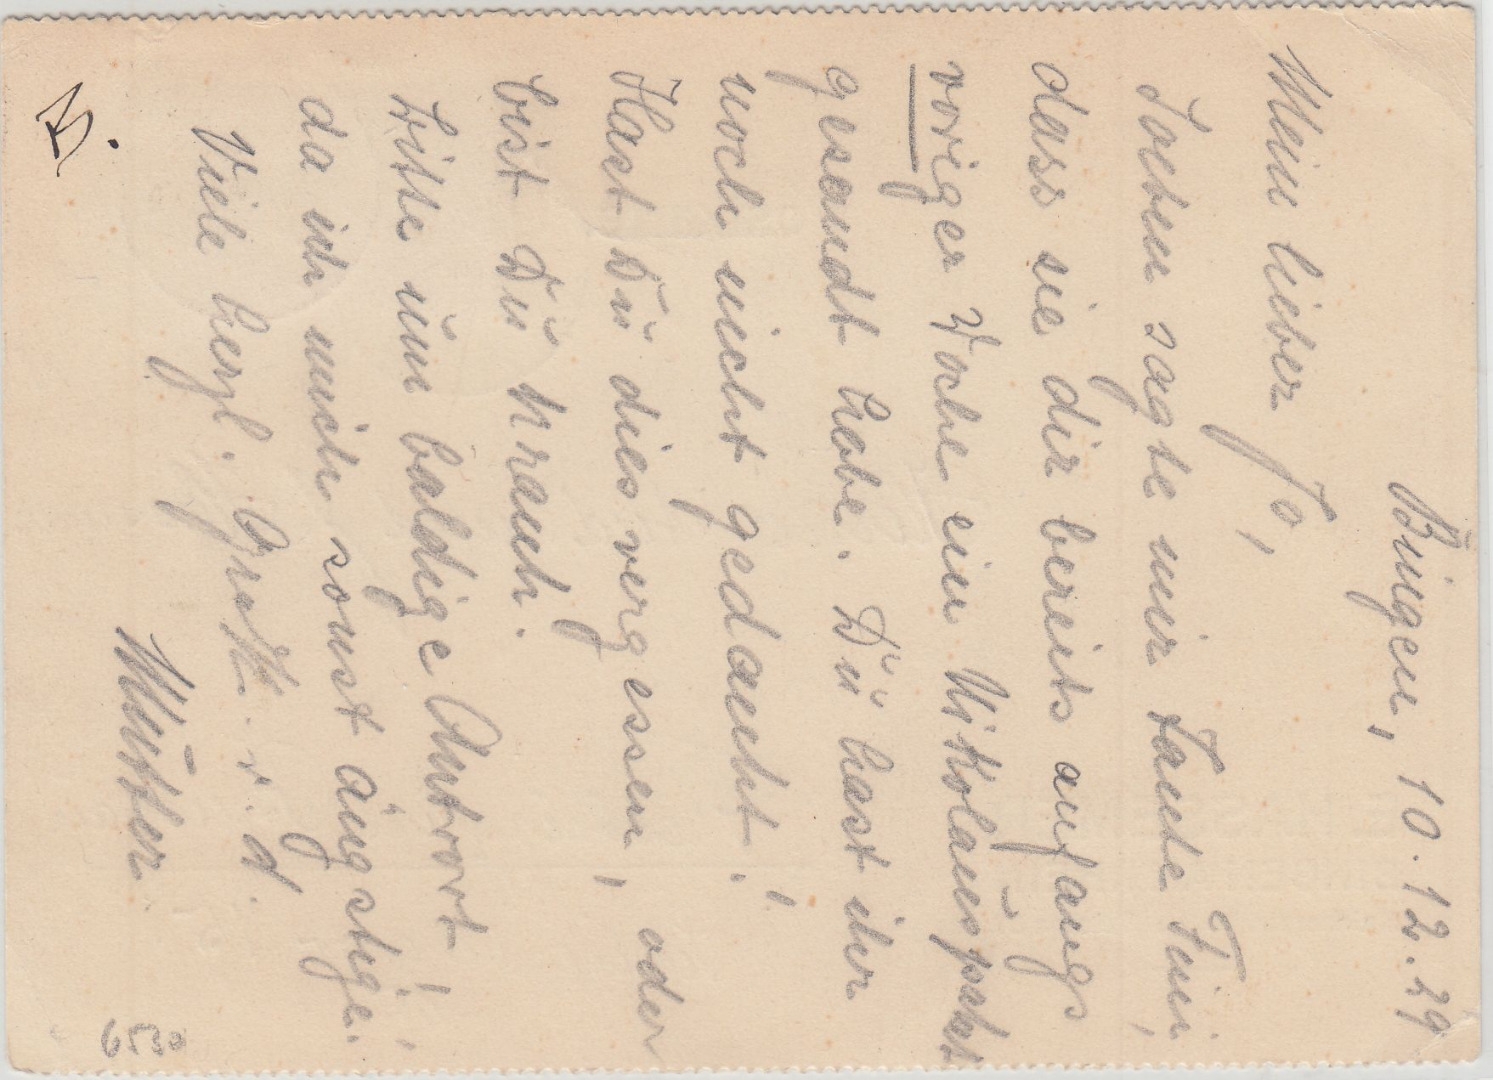 Bingen, 10.12.29
Mein lieber Jo,
Soeben sagte mir Tante Fini,
dass sie dir bereits anfangs
voriger Woche ein Nikolauspaket
gesandt habe. Du hast ihr
noch nicht gedankt!
Hast Du dies vergessen, oder
bist Du krank.
Bitte um baldige Antwort!,
da ich mich sonst ängstige.
Viele herzl. Grüße v. d.
Mutter.
6530